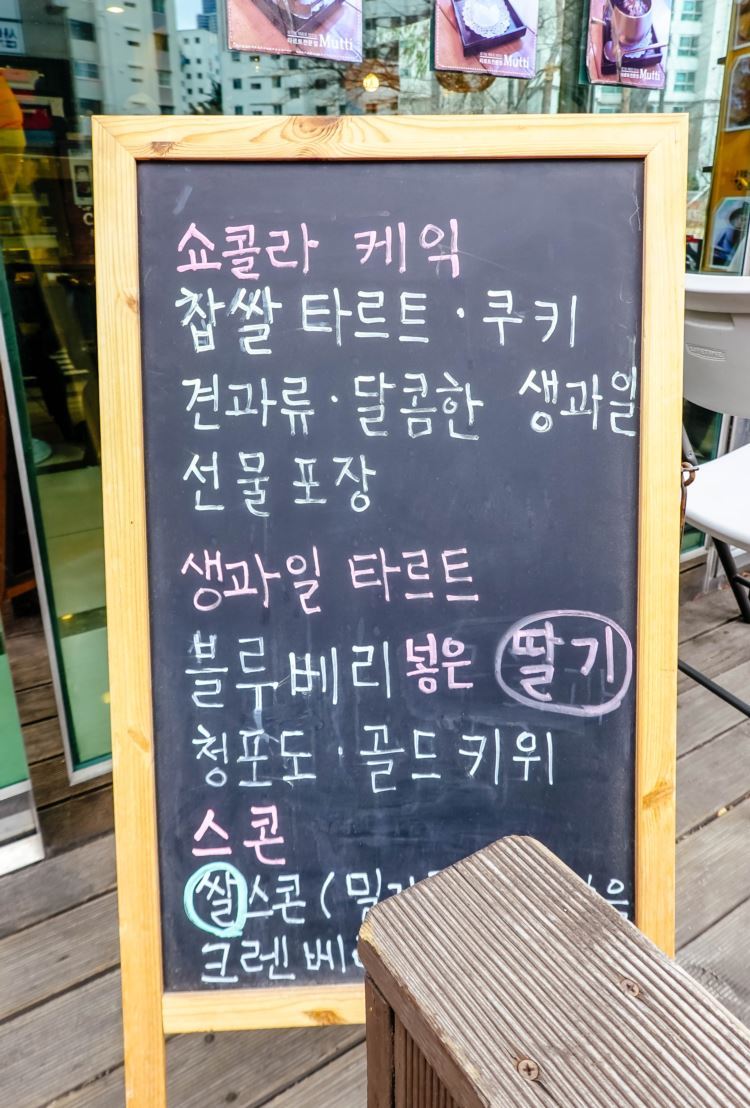 Mutti
Mutti
Mutti
쇼콜라 케익
찹쌀 타르트 · 쿠키
견과류 · 달콤한 생과일
선물 포장
생과일 타르트
블루베리 넣은 딸기
청포도 · 골드 키위
스콘
쌀스콘 (밀가
크렌베